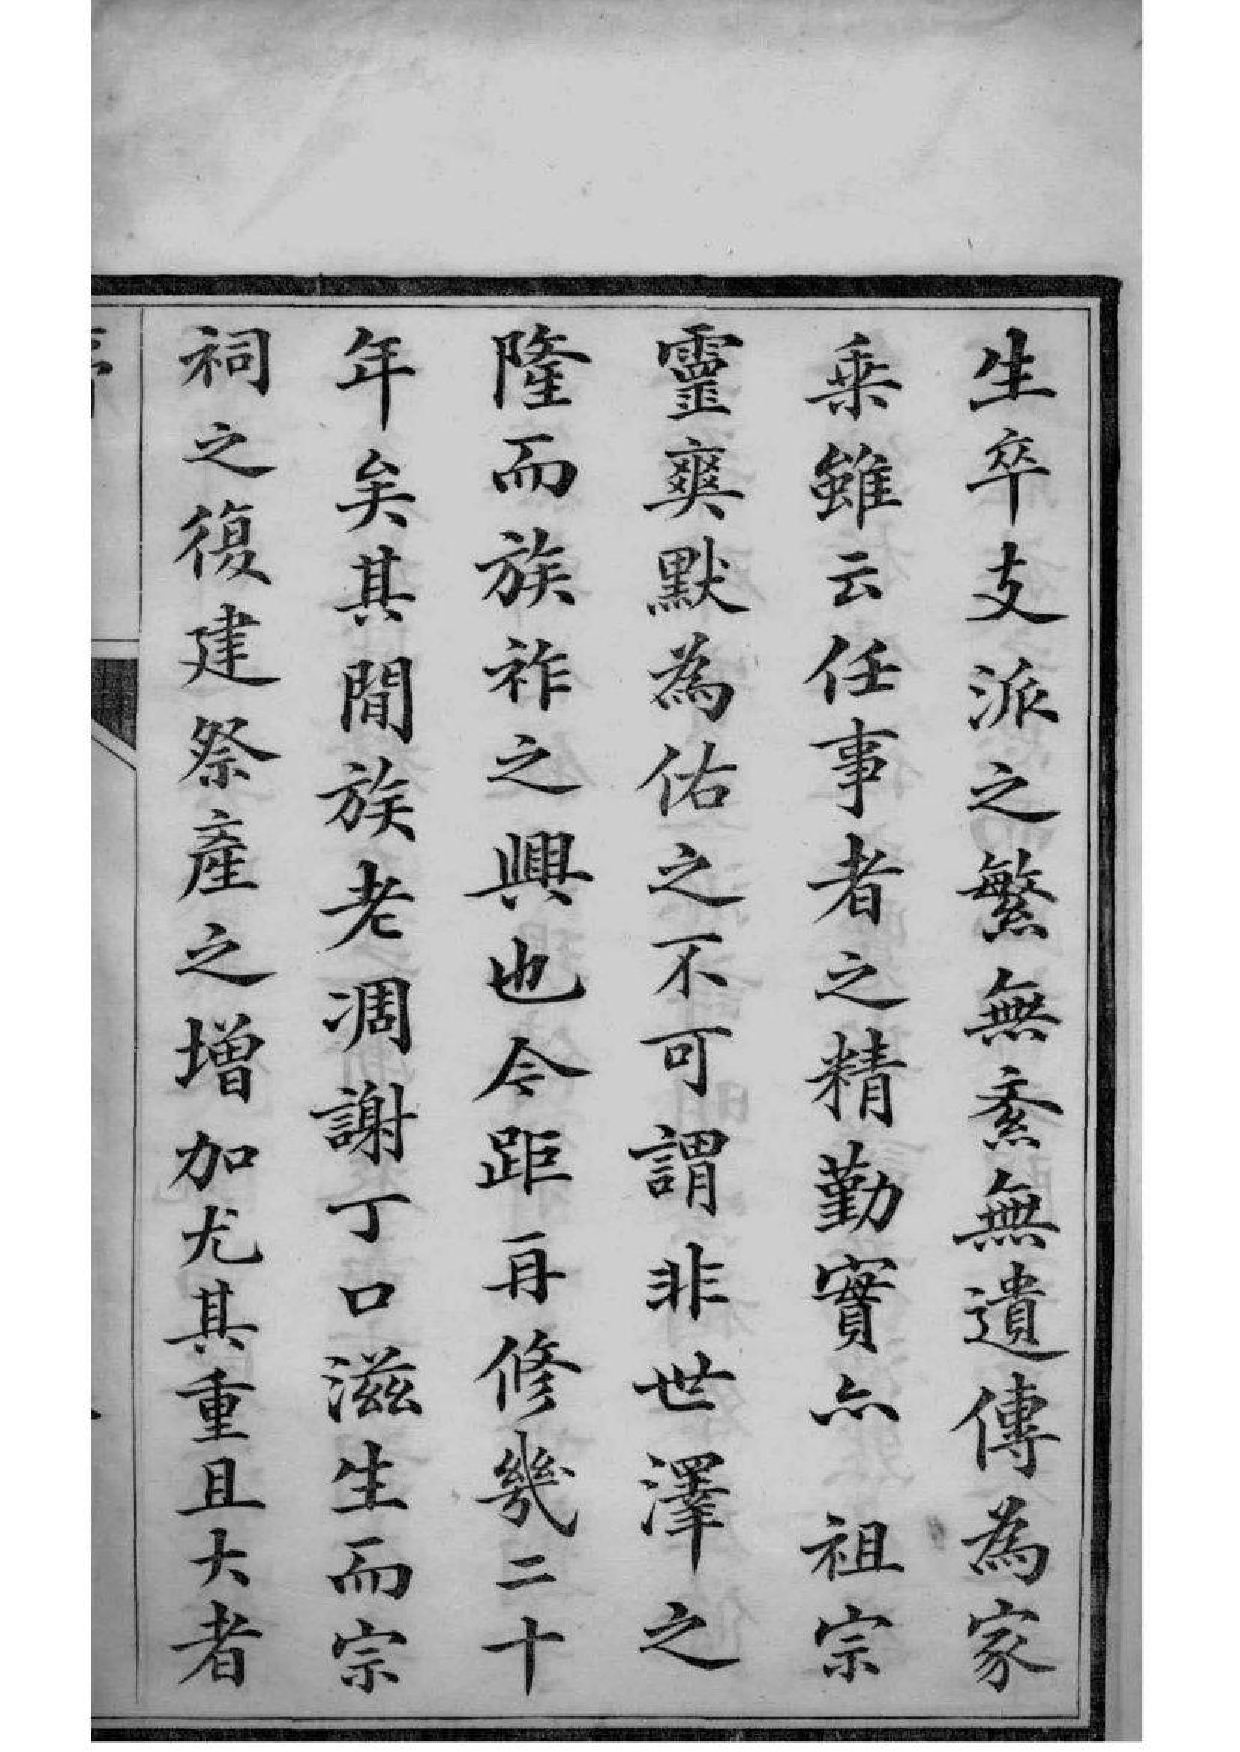 生卒支派之繁無紊無遺傳為家
乘雖云任事者之精勤實亦　祖宗
靈爽默為佑之不可謂非世澤之
隆而族祚之興也今距再修幾二十
年矣其間族老凋謝丁口滋生而宗
祠之復建祭產之增加尤其重且大者